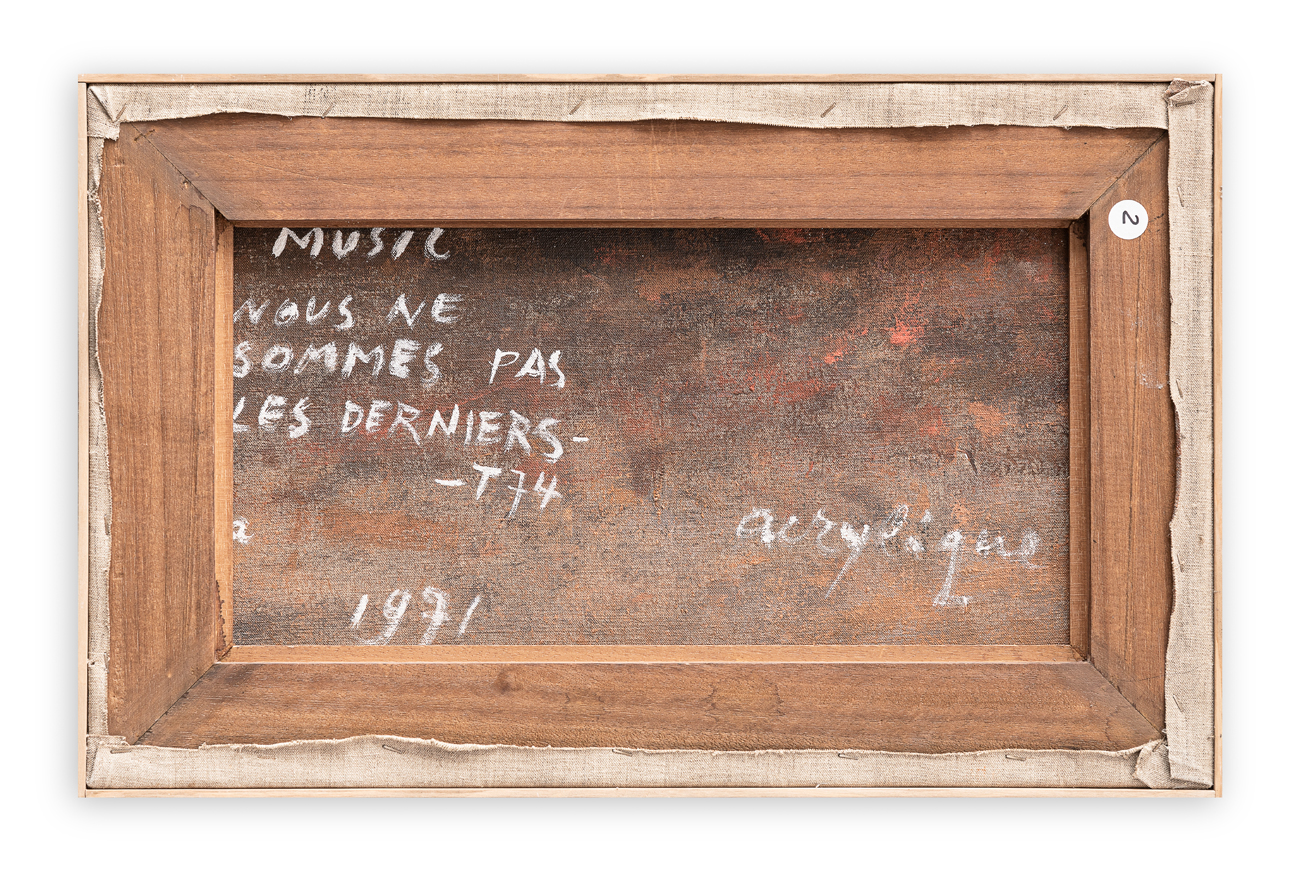 MUSIC
NOUS NE
SOMMES PAS
LES DERNIERS-
-T74
a
acrylique
1971
2